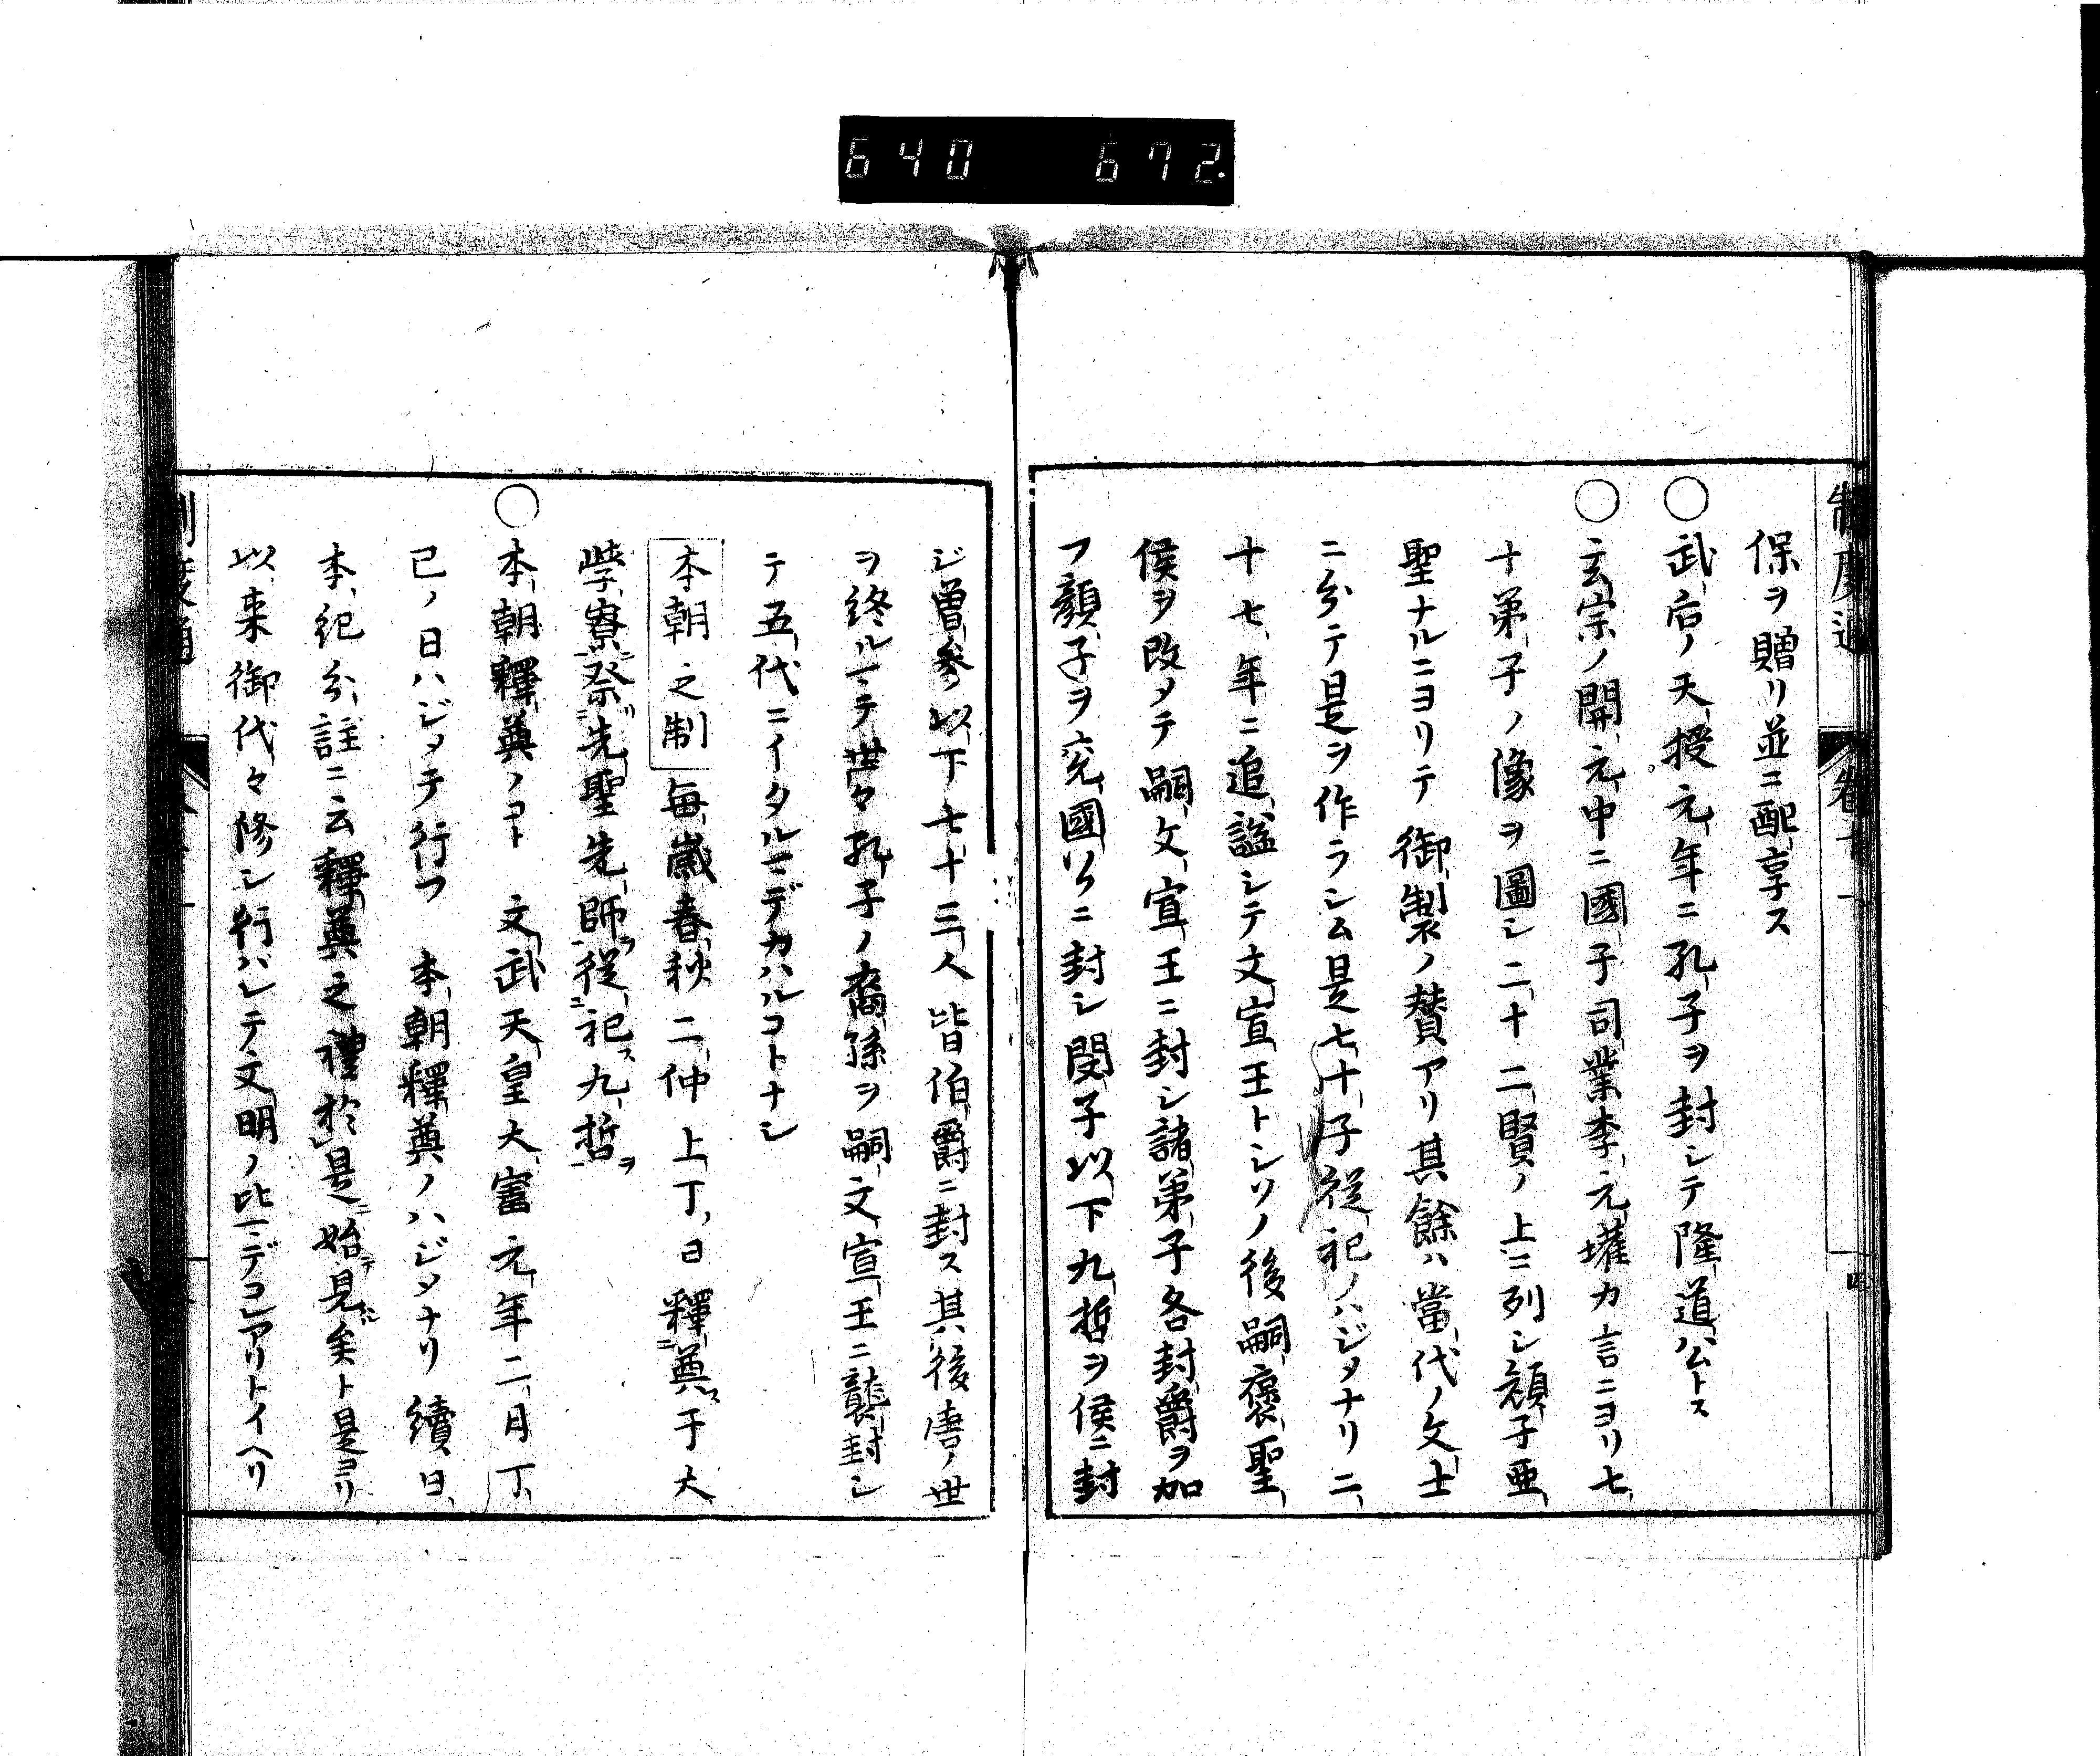 640 672.
制度通 卷十
保ヲ贈リ並ニ配享ス
○武后ノ天授元年ニ孔子ヲ封シテ隆道公トス
○玄宗ノ開元中ニ國子司業李元瓘カ言ニヨリ七
十弟子ノ像ヲ圖シ二十二賢ノ上ニ列シ顔子亜
聖ナルニヨリテ御製ノ賛アリ其餘ハ當代ノ文士
ニ分テ是ヲ作ラシム是七十子從祀ノハジメナリ二
十七年ニ追謚シテ文宣王トシソノ後嗣褒聖
侯ヲ改メテ嗣文宣王ニ封シ諸弟子各封爵ヲ加
フ顔子ヲ兗國公ニ封シ閔子以下九哲ヲ侯ニ封
ジ曽參以下七十三人皆伯爵ニ封ス其後唐ノ世
ヲ終ルマテ世々孔子ノ裔孫ヲ嗣文宣王ニ襲封シ
テ五代ニイタルマデカハルコトナシ
本朝之制 毎歳春秋二仲上丁日釋奠ス于大
學寮祭先聖先師從祀九哲ヲ
○本朝釋奠ノヿ 文武天皇大寳元年二月丁
巳ノ日ハジメテ行フ 本朝釋奠ノハジメナリ續日
本紀分註ニ云釋奠之禮於是始見矣ト是ヨリ
以来御代々修シ行ハレテ文明ノ比マデコレアリトイヘリ
制度通